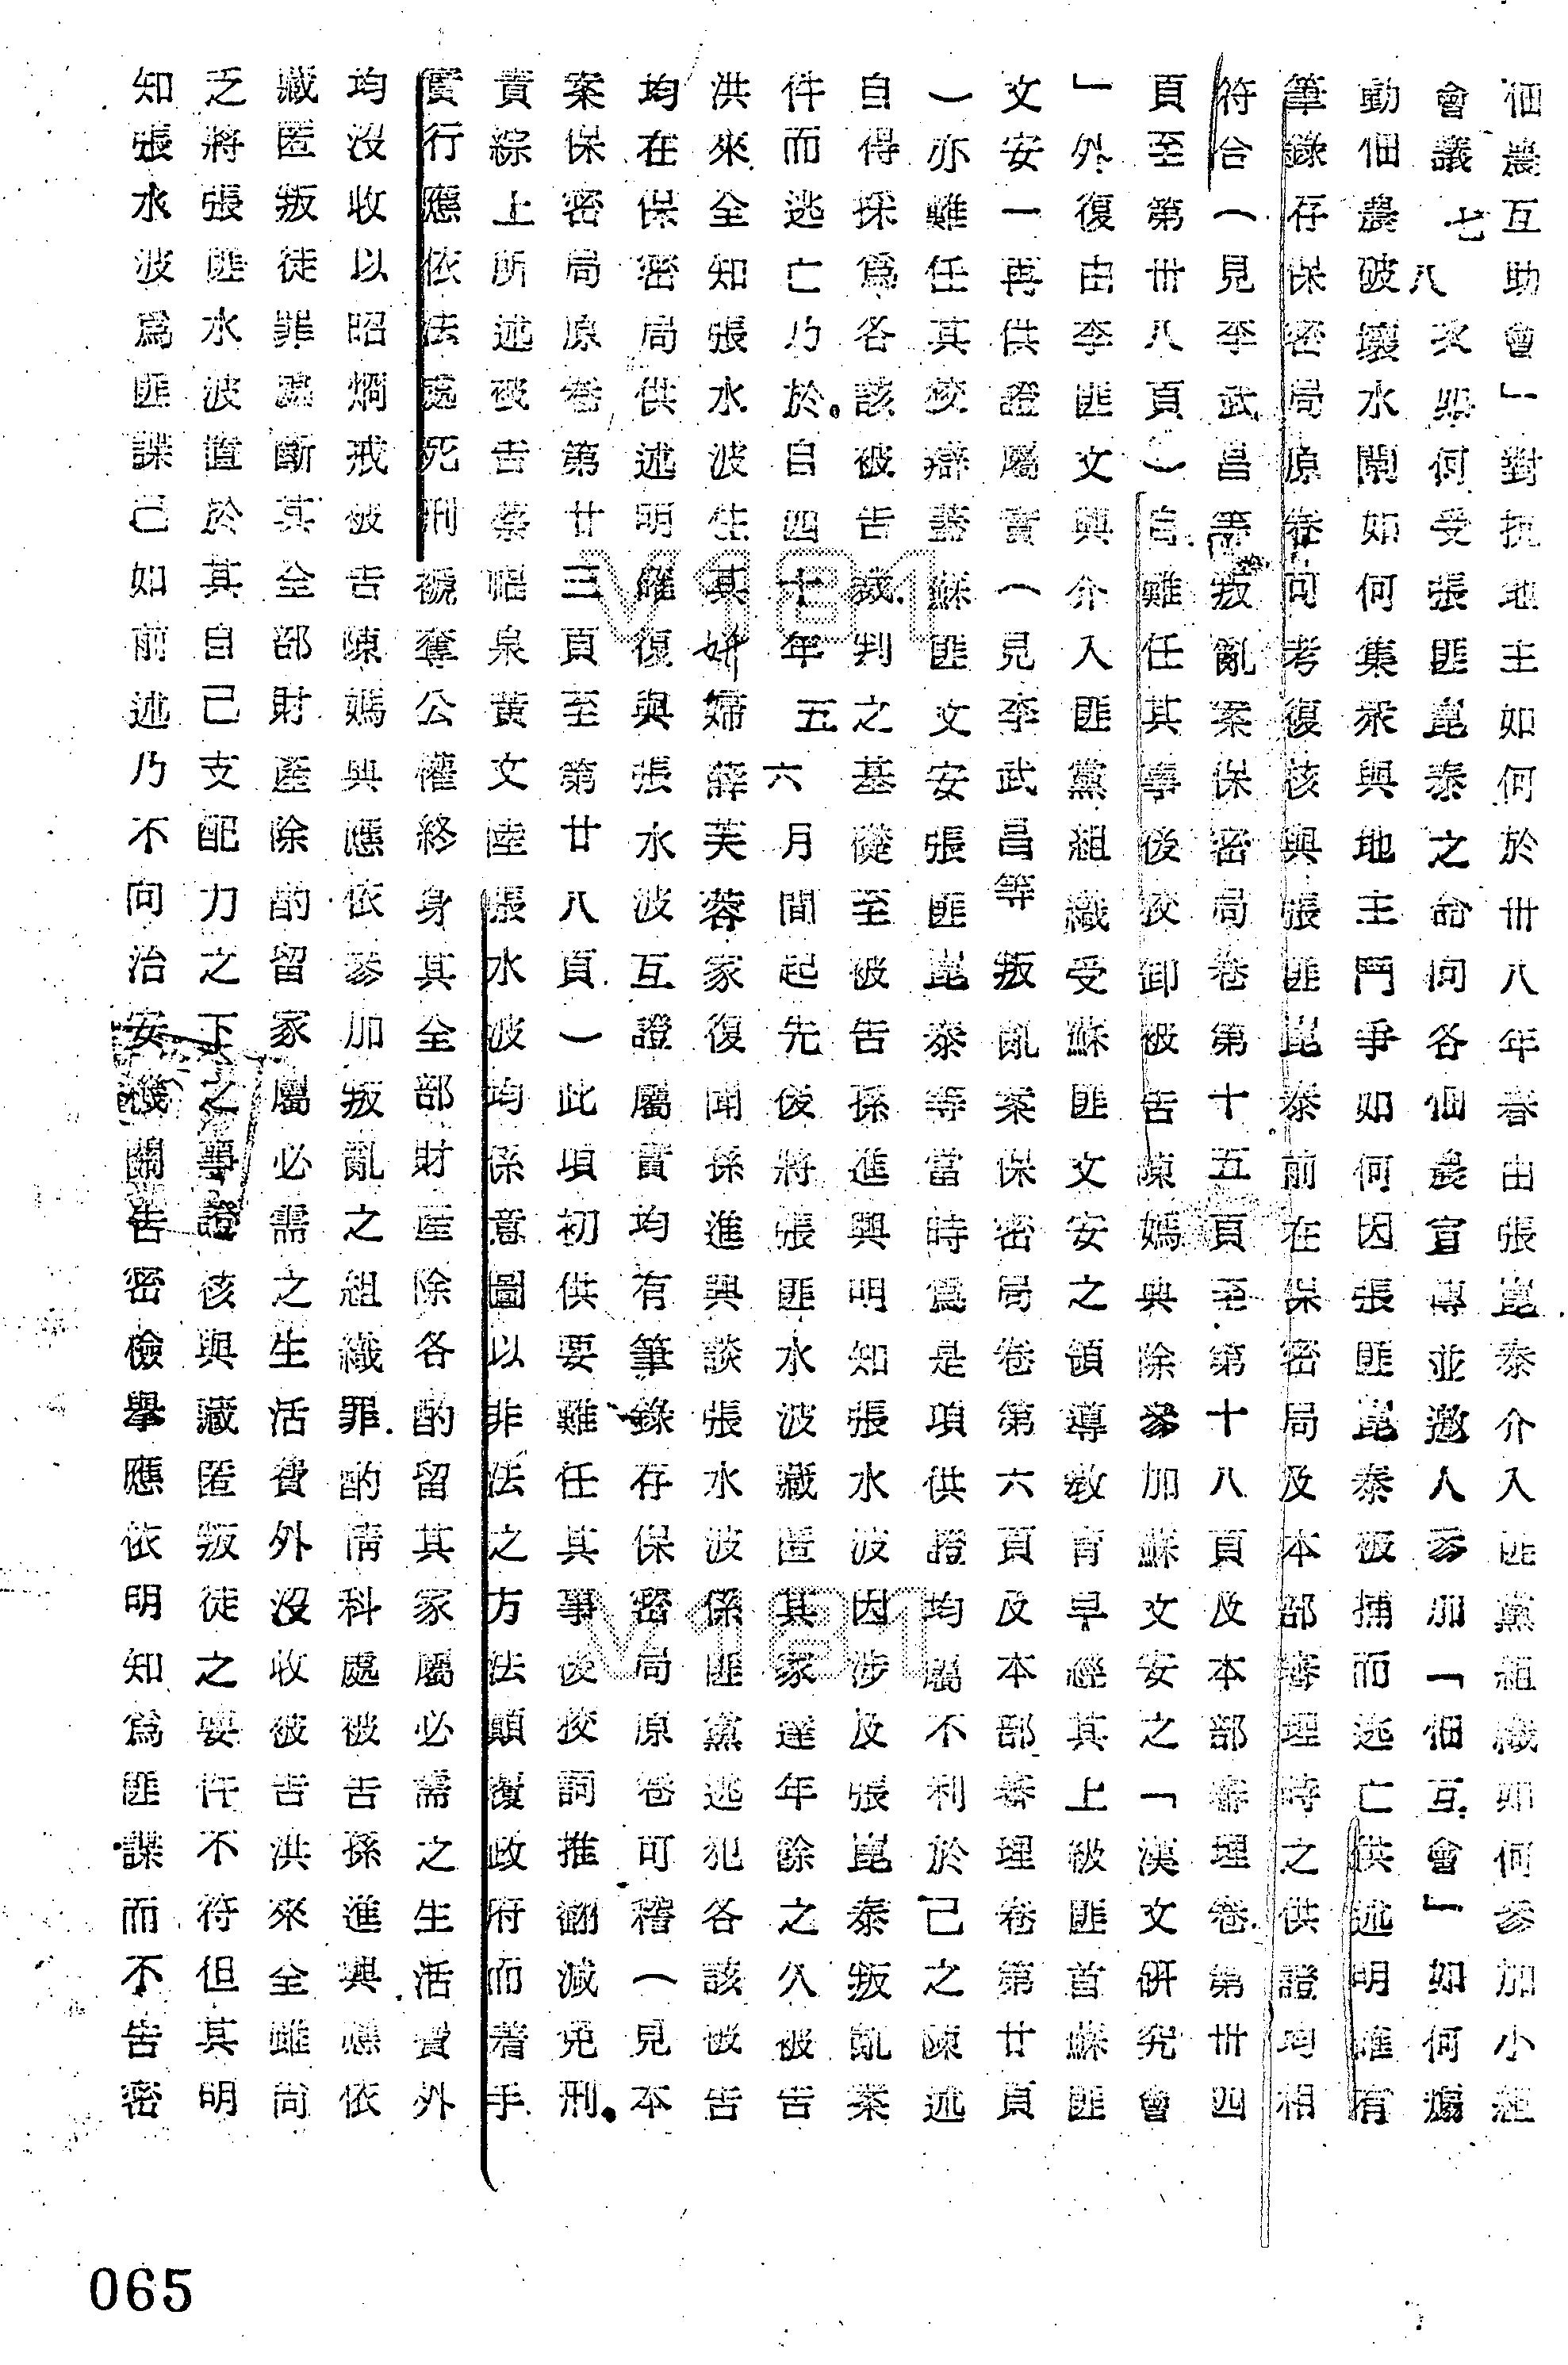 佃農互助會」對抗地主如何於卅八年春由張崑泰介入匪黨組織如何參加小組
會議七八次如何受張匪崑泰之命向各佃農宣傳並邀人參加「佃互會」如何煽
動佃農破壞水閘如何集眾與地主鬥爭如何因張匪崑泰被捕而逃亡供述明確有
筆錄存保密局原卷可考復核與張匪崑泰前在保密局及本部審理時之供證均相
符合（見李武昌等叛亂案保密局卷第十五頁至第十八頁及本部審理卷第卅四
頁至第卅八頁）自難任其事後狡卸被告陳媽典除參加蘇文安之「漢文研究會
」外復由李匪文興介入匪黨組織受蘇匪文安之領導教育早經其上級匪首蘇匪
文安一再供證屬實（見李武昌等叛亂案保密局卷第六頁及本部審理卷第廿頁
）亦難任其狡辯蓋蘇匪文安張匪崑泰等當時為是項供證均屬不利於己之陳述
自得採為各該被告裁判之基礎至被告孫進興明知張水波因涉及張崑泰叛亂案
件而逃亡乃於自四十年五六月間起先後將張匪水波藏匿其家達年餘之久被告
洪來全知張水波生其姘婦薛芙蓉家復聞孫進興談張水波係匪黨逃犯各該被告
均在保密局供述明確復與張水波互證屬實均有筆錄存保密局原卷可稽（見本
案保密局原卷第廿三頁至第廿八頁）此項初供要難任其事後狡詞推翻減免刑
責綜上所述被告蔡昭泉黃文陸張水波均係意圖以非法之方法顛覆政府而着手
實行應依法處死刑褫奪公權終身其全部財產除各酌留其家屬必需之生活費外
均沒收以昭烱戒被告陳媽興應依參加叛亂之組織罪酌情科處被告孫進興應依
藏匿叛徒罪處斷其全部財產除酌留家屬必需之生活費外沒收被告洪來全雖尚
乏將張匪水波置於其自己支配力之下之事證核與藏匿叛徒之要件不符但其明
知張水波為匪諜已如前述乃不向治安機關告密檢舉應依明知為匪諜而不告密
065
V181
V181